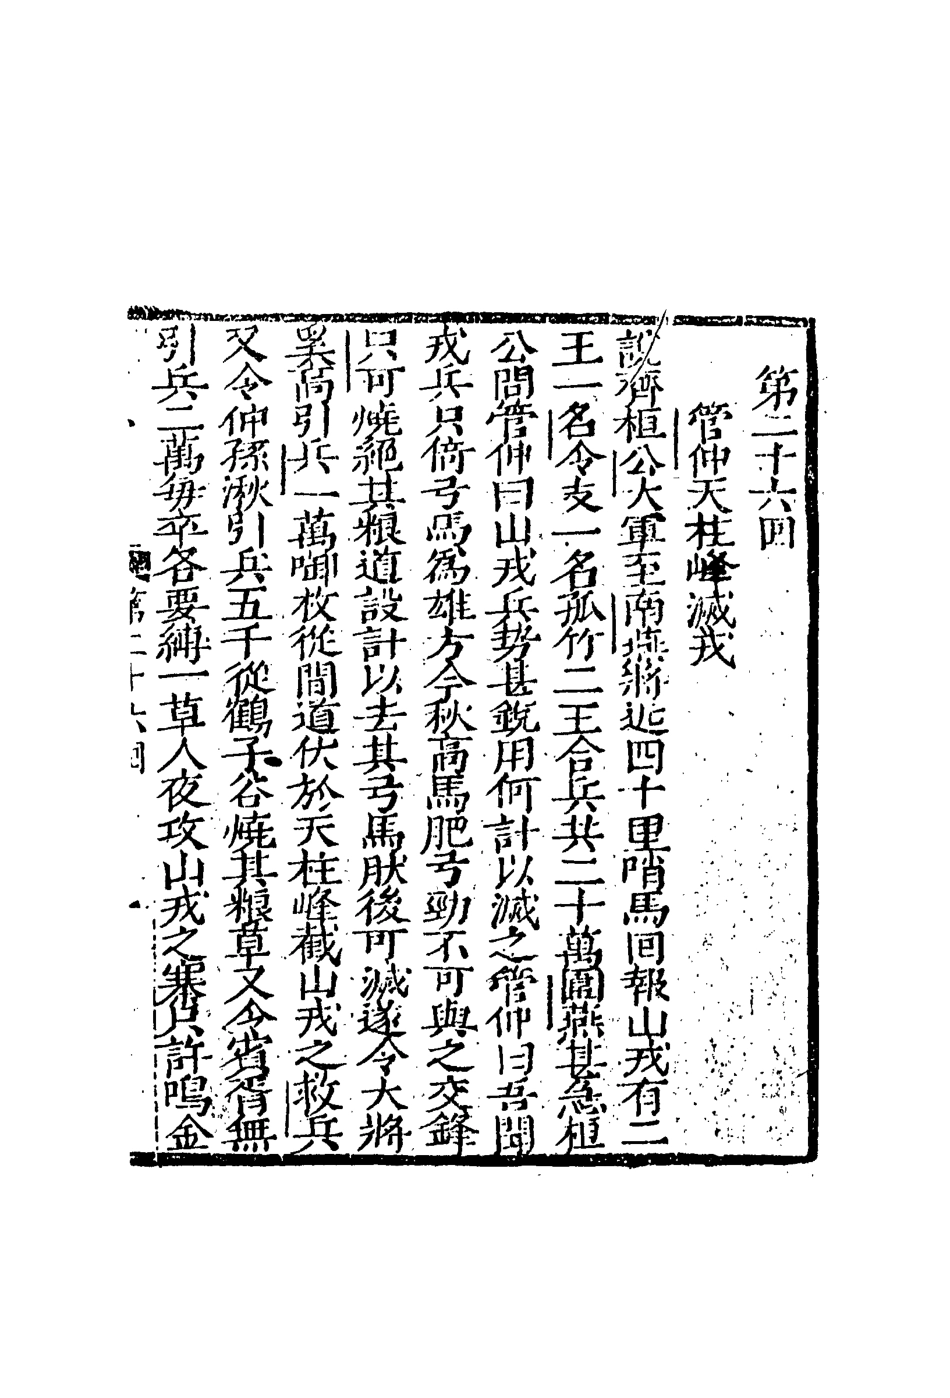 第二十六回
管仲天柱峰滅戎
說齊桓公大軍至南燕將近四十里哨馬回報山戎有二
王一名令支一名孤竹二王合兵共二十萬圍燕甚急桓
公問管仲曰山戎兵势甚銳用何計以滅之管仲曰吾聞
戎兵只倚弓馬為雄方今秋高馬肥弓勁不可與之交鋒
只可燒絕其粮道設計以去其弓馬肰後可滅遂令大將
奚高引兵一萬啣枚從間道伏於天柱峰截山戎之救兵
又令仲孫湫引兵五千從鶴子谷燒其粮草又令賓胥無
引兵二萬每卒各要縛一草人夜攻山戎之寨只許鳴金
第二十六回